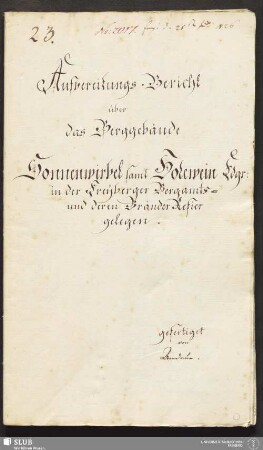 23.
Aufbereitungs-Bericht
über
das Berggebäude
Sonnenwirbel samt Holewein Fdgr:
in der Freyberger Bergamts-
und deren Bränder Refier
gelegen.
gefertiget
von
SLUB